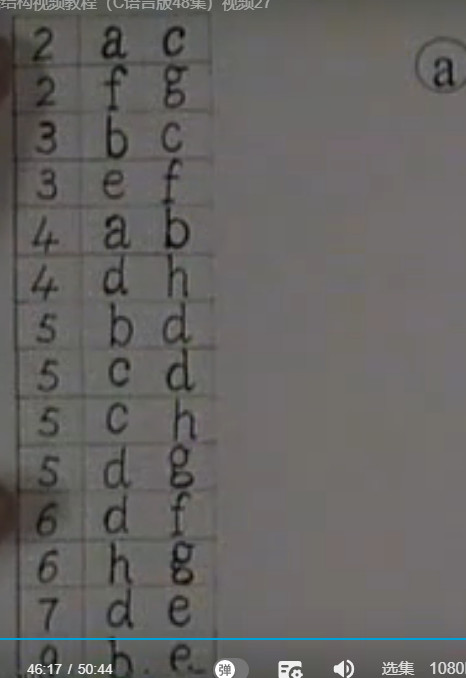 结构视频教程（C语言版48集）视频27
2 a c
2 f g
3 b c
3 e f
4 a b
4 d h
5 b d
5 c d
5 c h
5 d g
6 d f
6 h g
7 d e
b e
a
46:17 / 50:44 弹 选集 1080